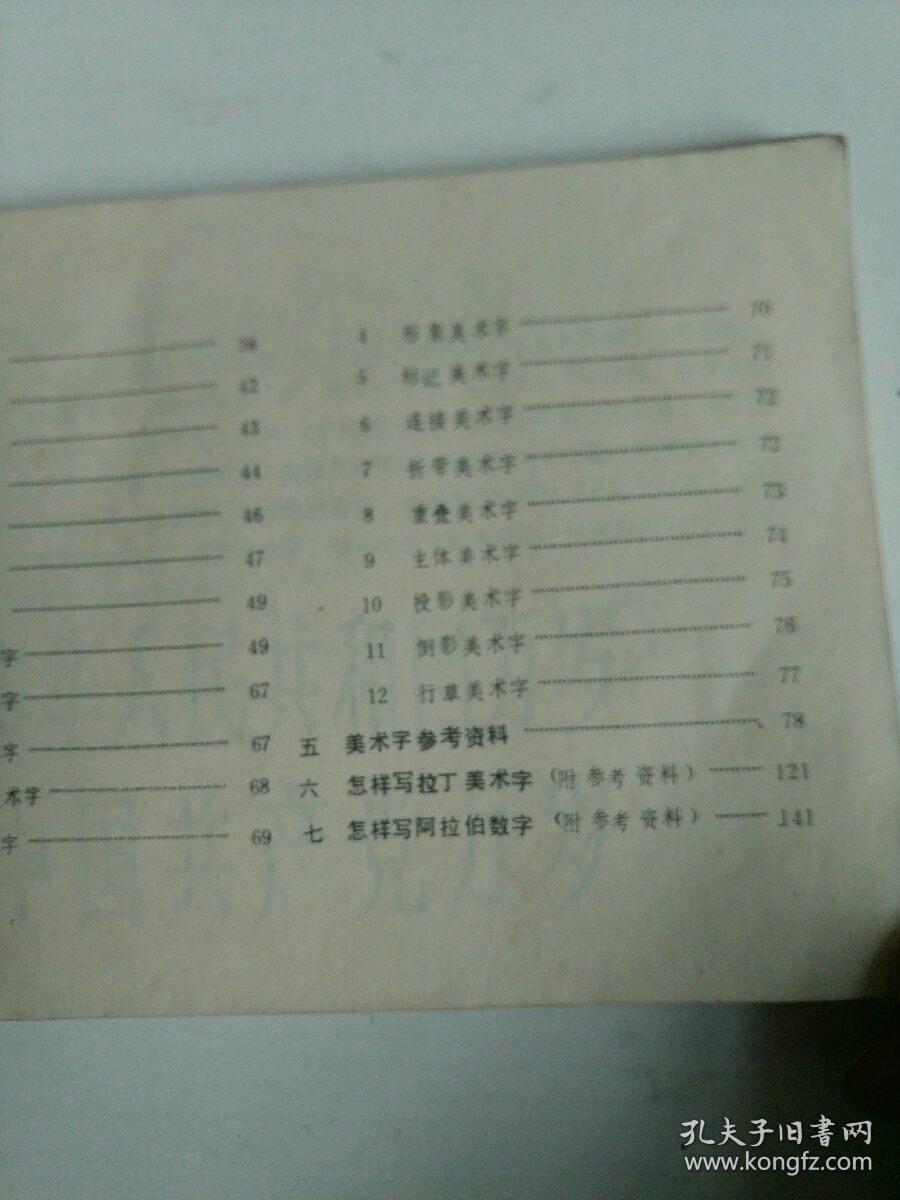 38
42
43
44
46
47
49
字 49
字 67
字 67
术字 68
字 69
4 形象美术字 70
5 标记美术字 71
6 连接美术字 72
7 折带美术字 72
8 重叠美术字 73
9 主体美术字 74
10 投影美术字 75
11 倒影美术字 76
12 行草美术字 77
五 美术字参考资料 78
六 怎样写拉丁美术字（附参考资料） 121
七 怎样写阿拉伯数字（附参考资料） 141
孔夫子旧书网
www.kongfz.com